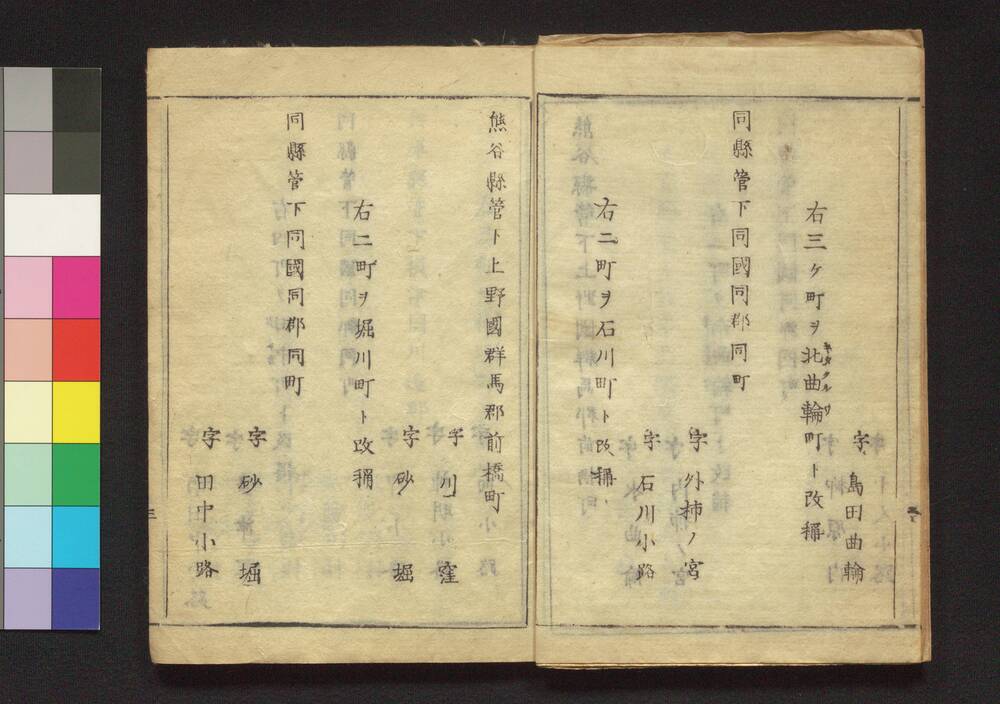 字島田曲輪
右三ケ町ヲ北曲輪町ト改稱
キタクルワ
同縣管下同國同郡同町
字外柿ノ宮
字石川小路
右二町ヲ石川町ト改稱
熊谷縣管下上野國群馬郡前橋町
字川窪
字砂堀
右二町ヲ堀川町ト改稱
同縣管下同國同郡同町
字砂堀
字田中小路